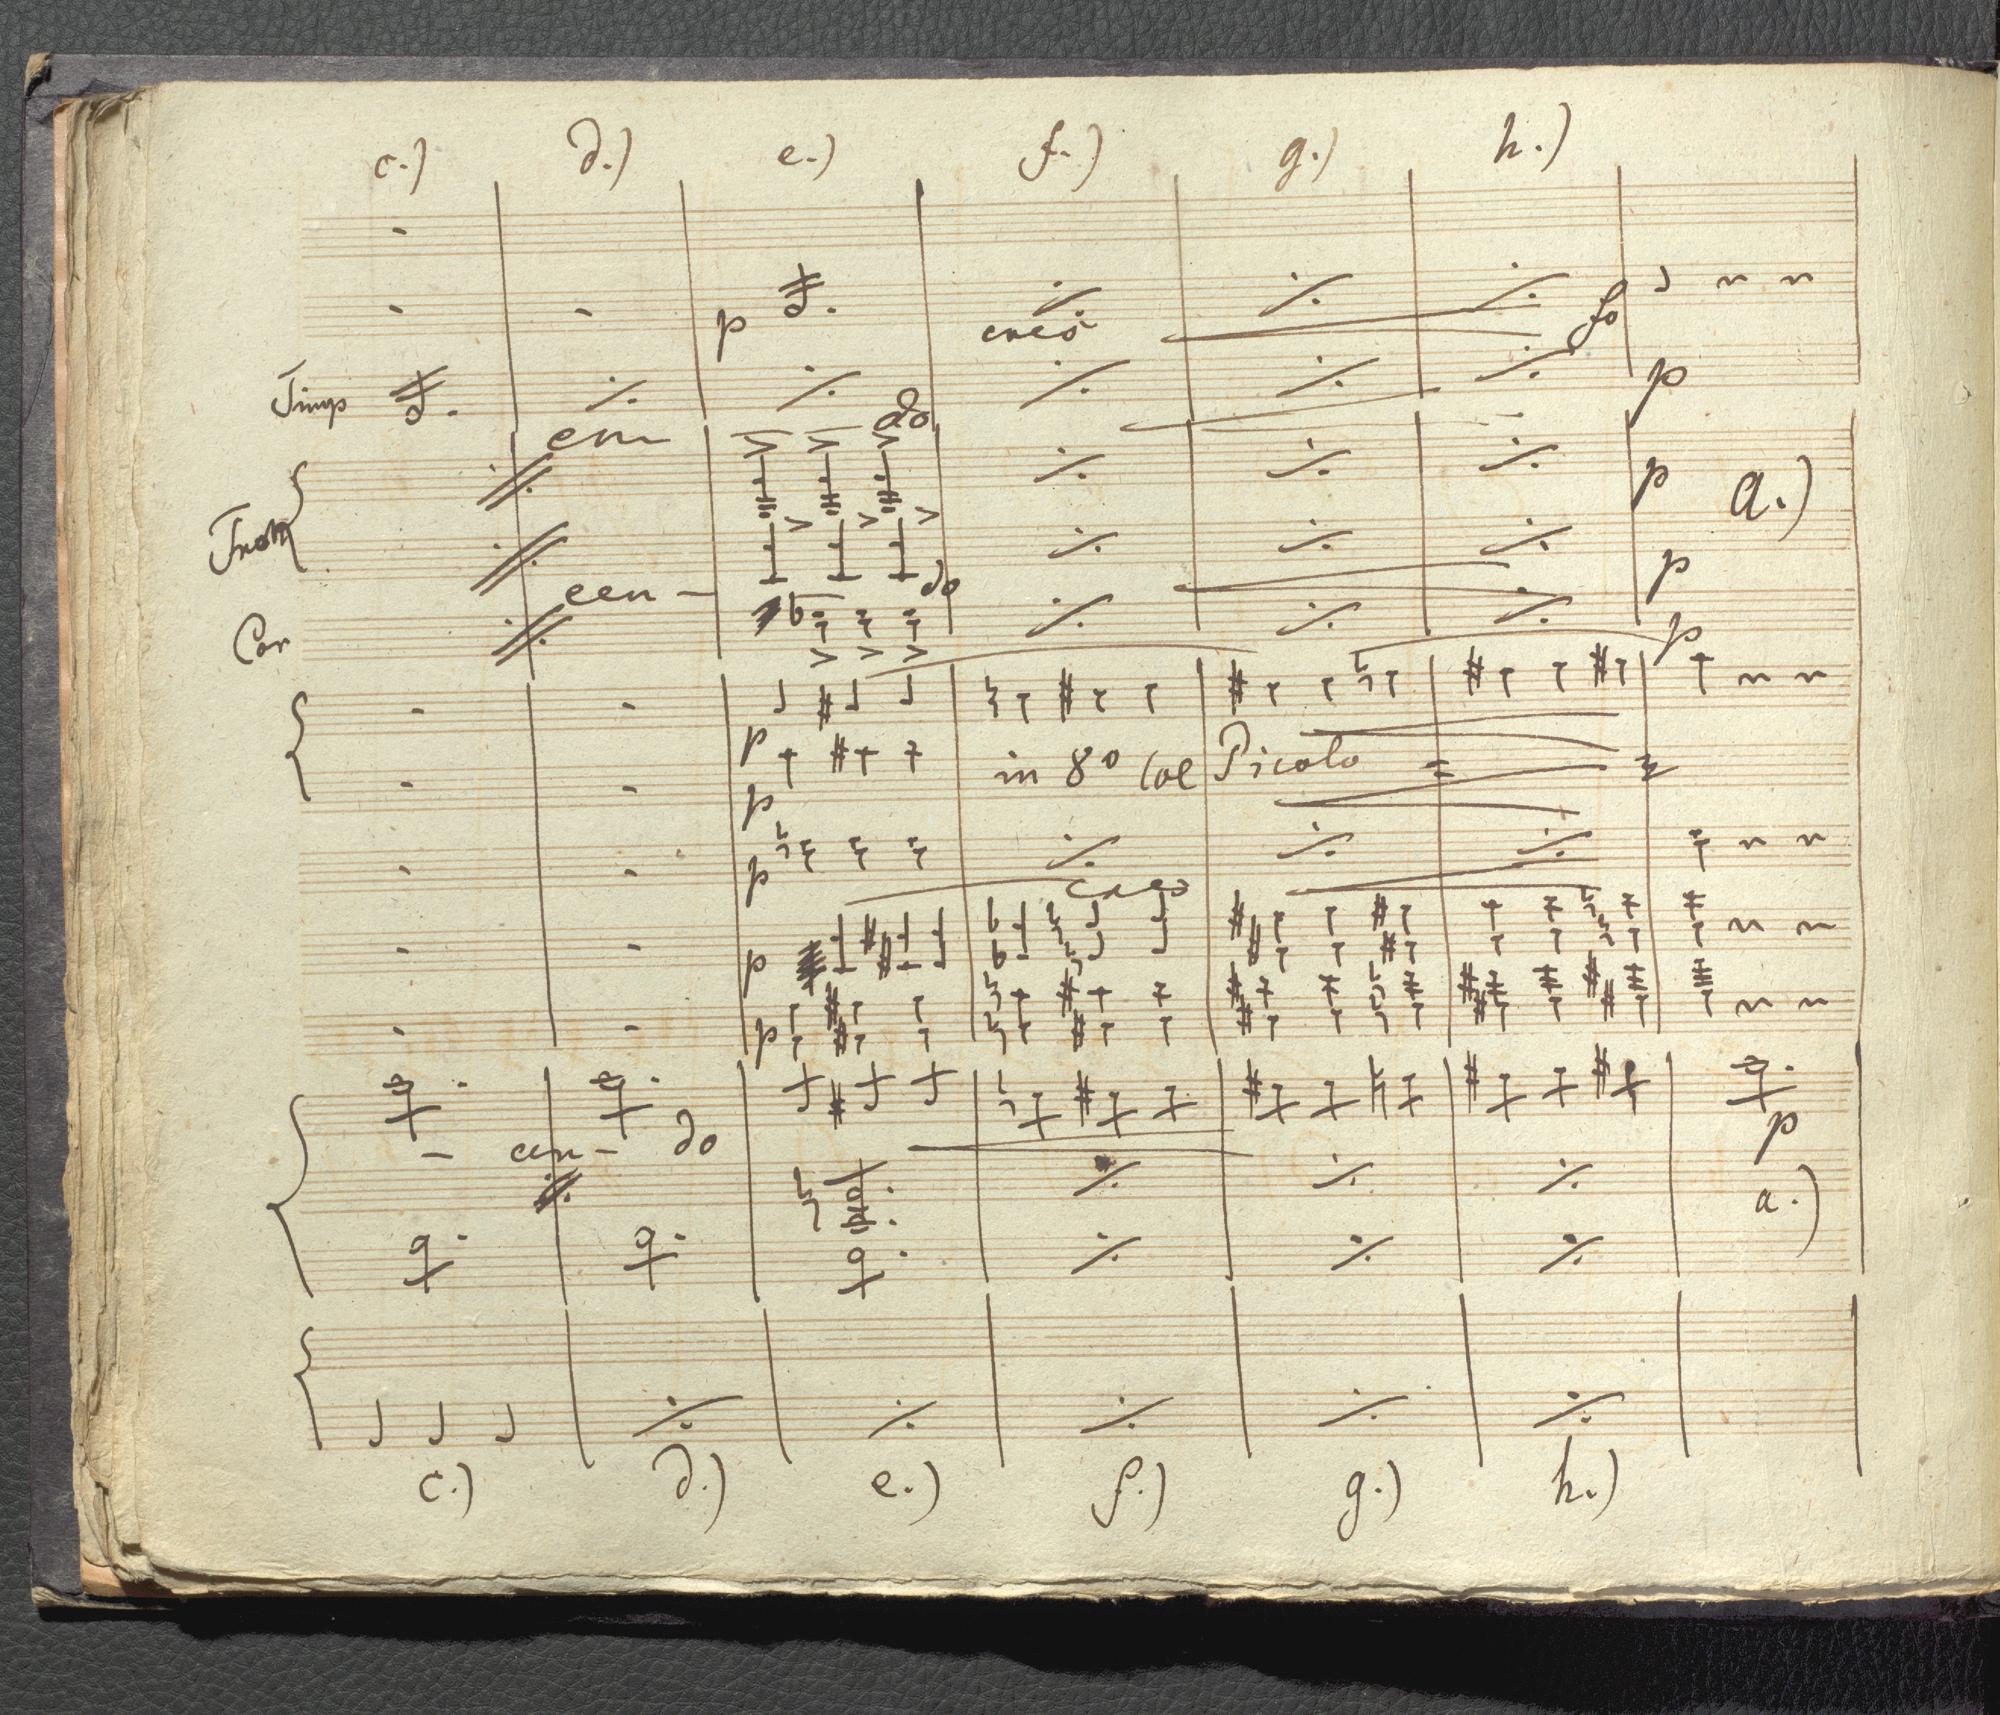 c.) d.) e.) f.) g.) h.)
p cresc fo
Timp p
cen do
p a.)
Trom
cen - do p
Cor p
p in 8º col Picolo
p
p
cresc
p
p
- cen - do p
a.)
c.) d.) e.) f.) g.) h.)